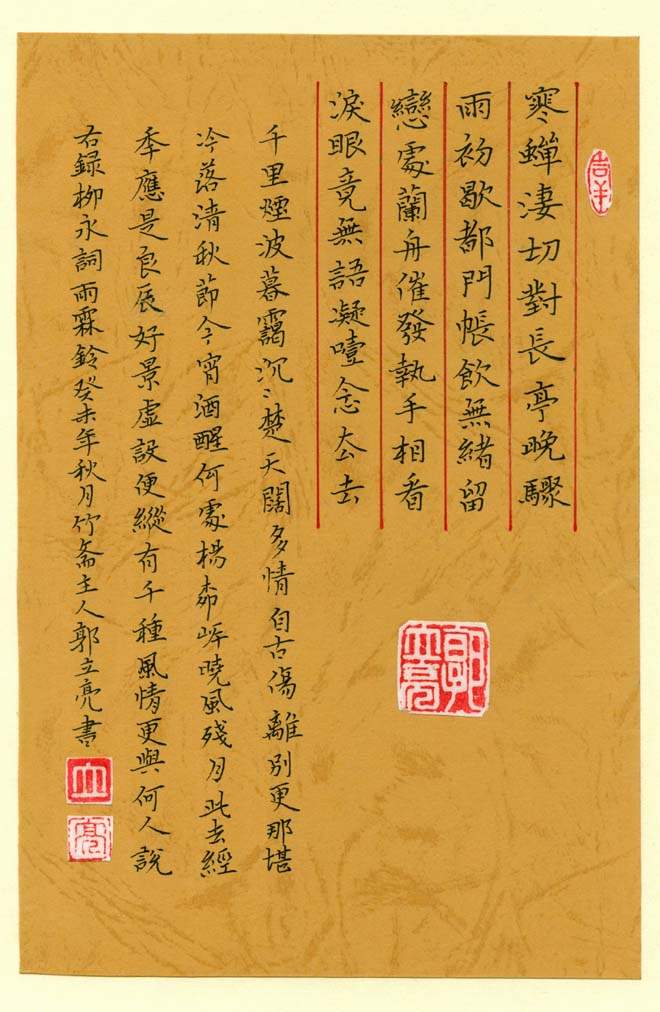 吉羊
寒蟬淒切對長亭晚驟
雨初歇都門帳飲無緒留
戀處蘭舟催發執手相看
淚眼竟無語凝噎念去去
千里煙波暮靄沉〻楚天闊多情自古傷離別更那堪
冷落清秋節今宵酒醒何處楊柳岸曉風殘月此去經
年應是良辰好景虛設便縱有千種風情更與何人說
右録柳永詞雨霖鈴癸未年秋月竹齋主人郭立亮書
郭立亮
立
亮